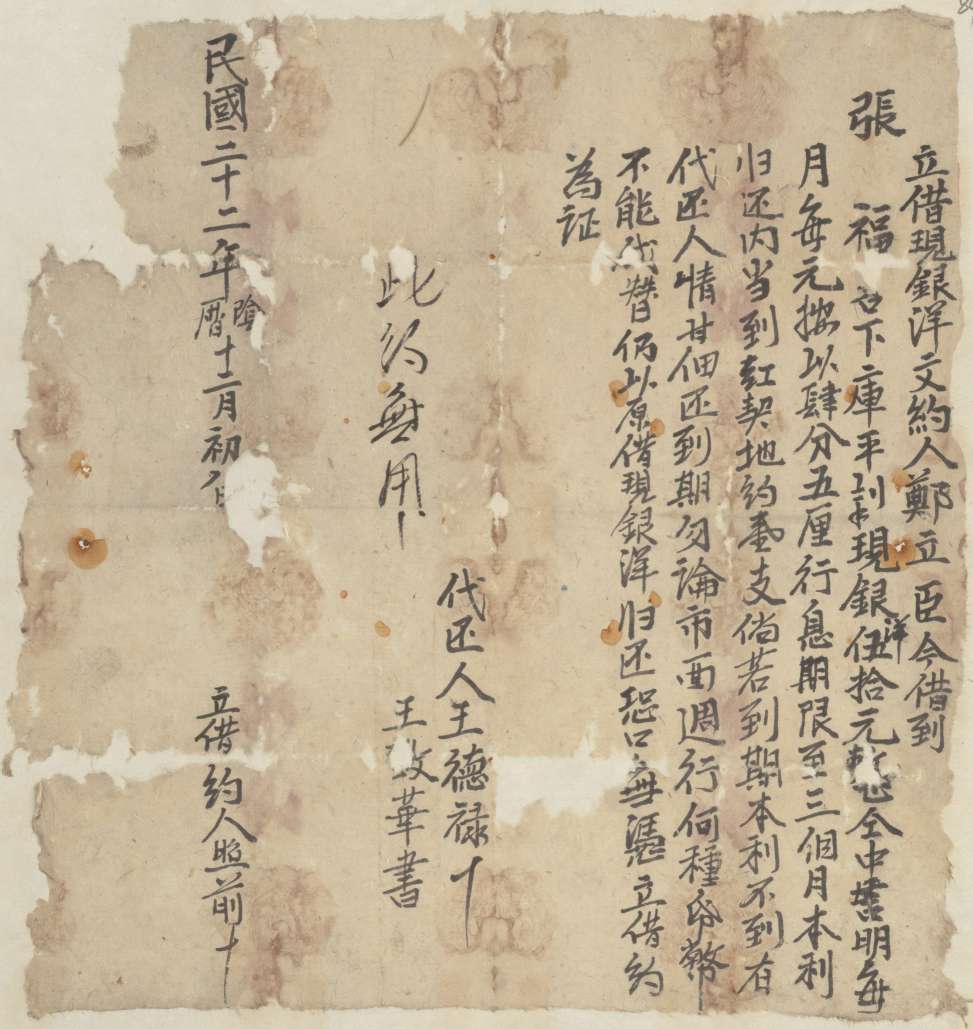 立借現銀洋文約人鄭立臣今借到
張福名下庫平到現銀洋伍拾元整仝中言明每
月每元按以肆分五厘行息期限至三個月本利
归还内当到紅契地約壹支倘若到期本利不到有
代还人情甘佃还到期勿論市面週行何種帋幣
不能代替仍以原借現銀洋归还恐口無憑立借約
為証
此約無用
代还人王德禄十
王 華書
民國二十二年陰曆十二月初八日
立借約人照前十